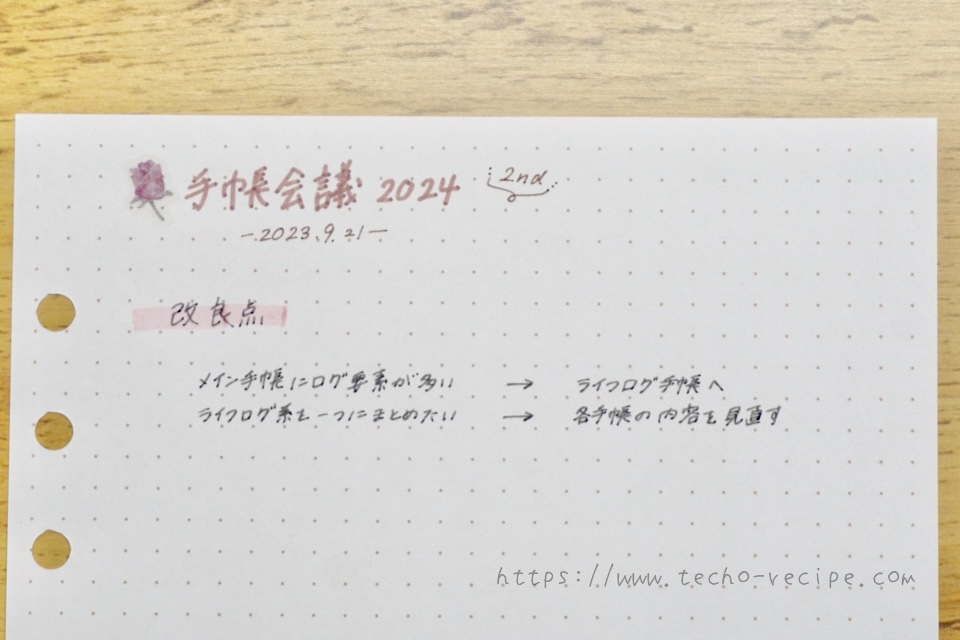 手帳会議 2024 2nd
-2023.9.21-
改良点
メイン手帳にログ要素が多い → ライフログ手帳へ
ライフログ系を一つにまとめたい → 各手帳の内容を見直す
https://www.techo-recipe.com